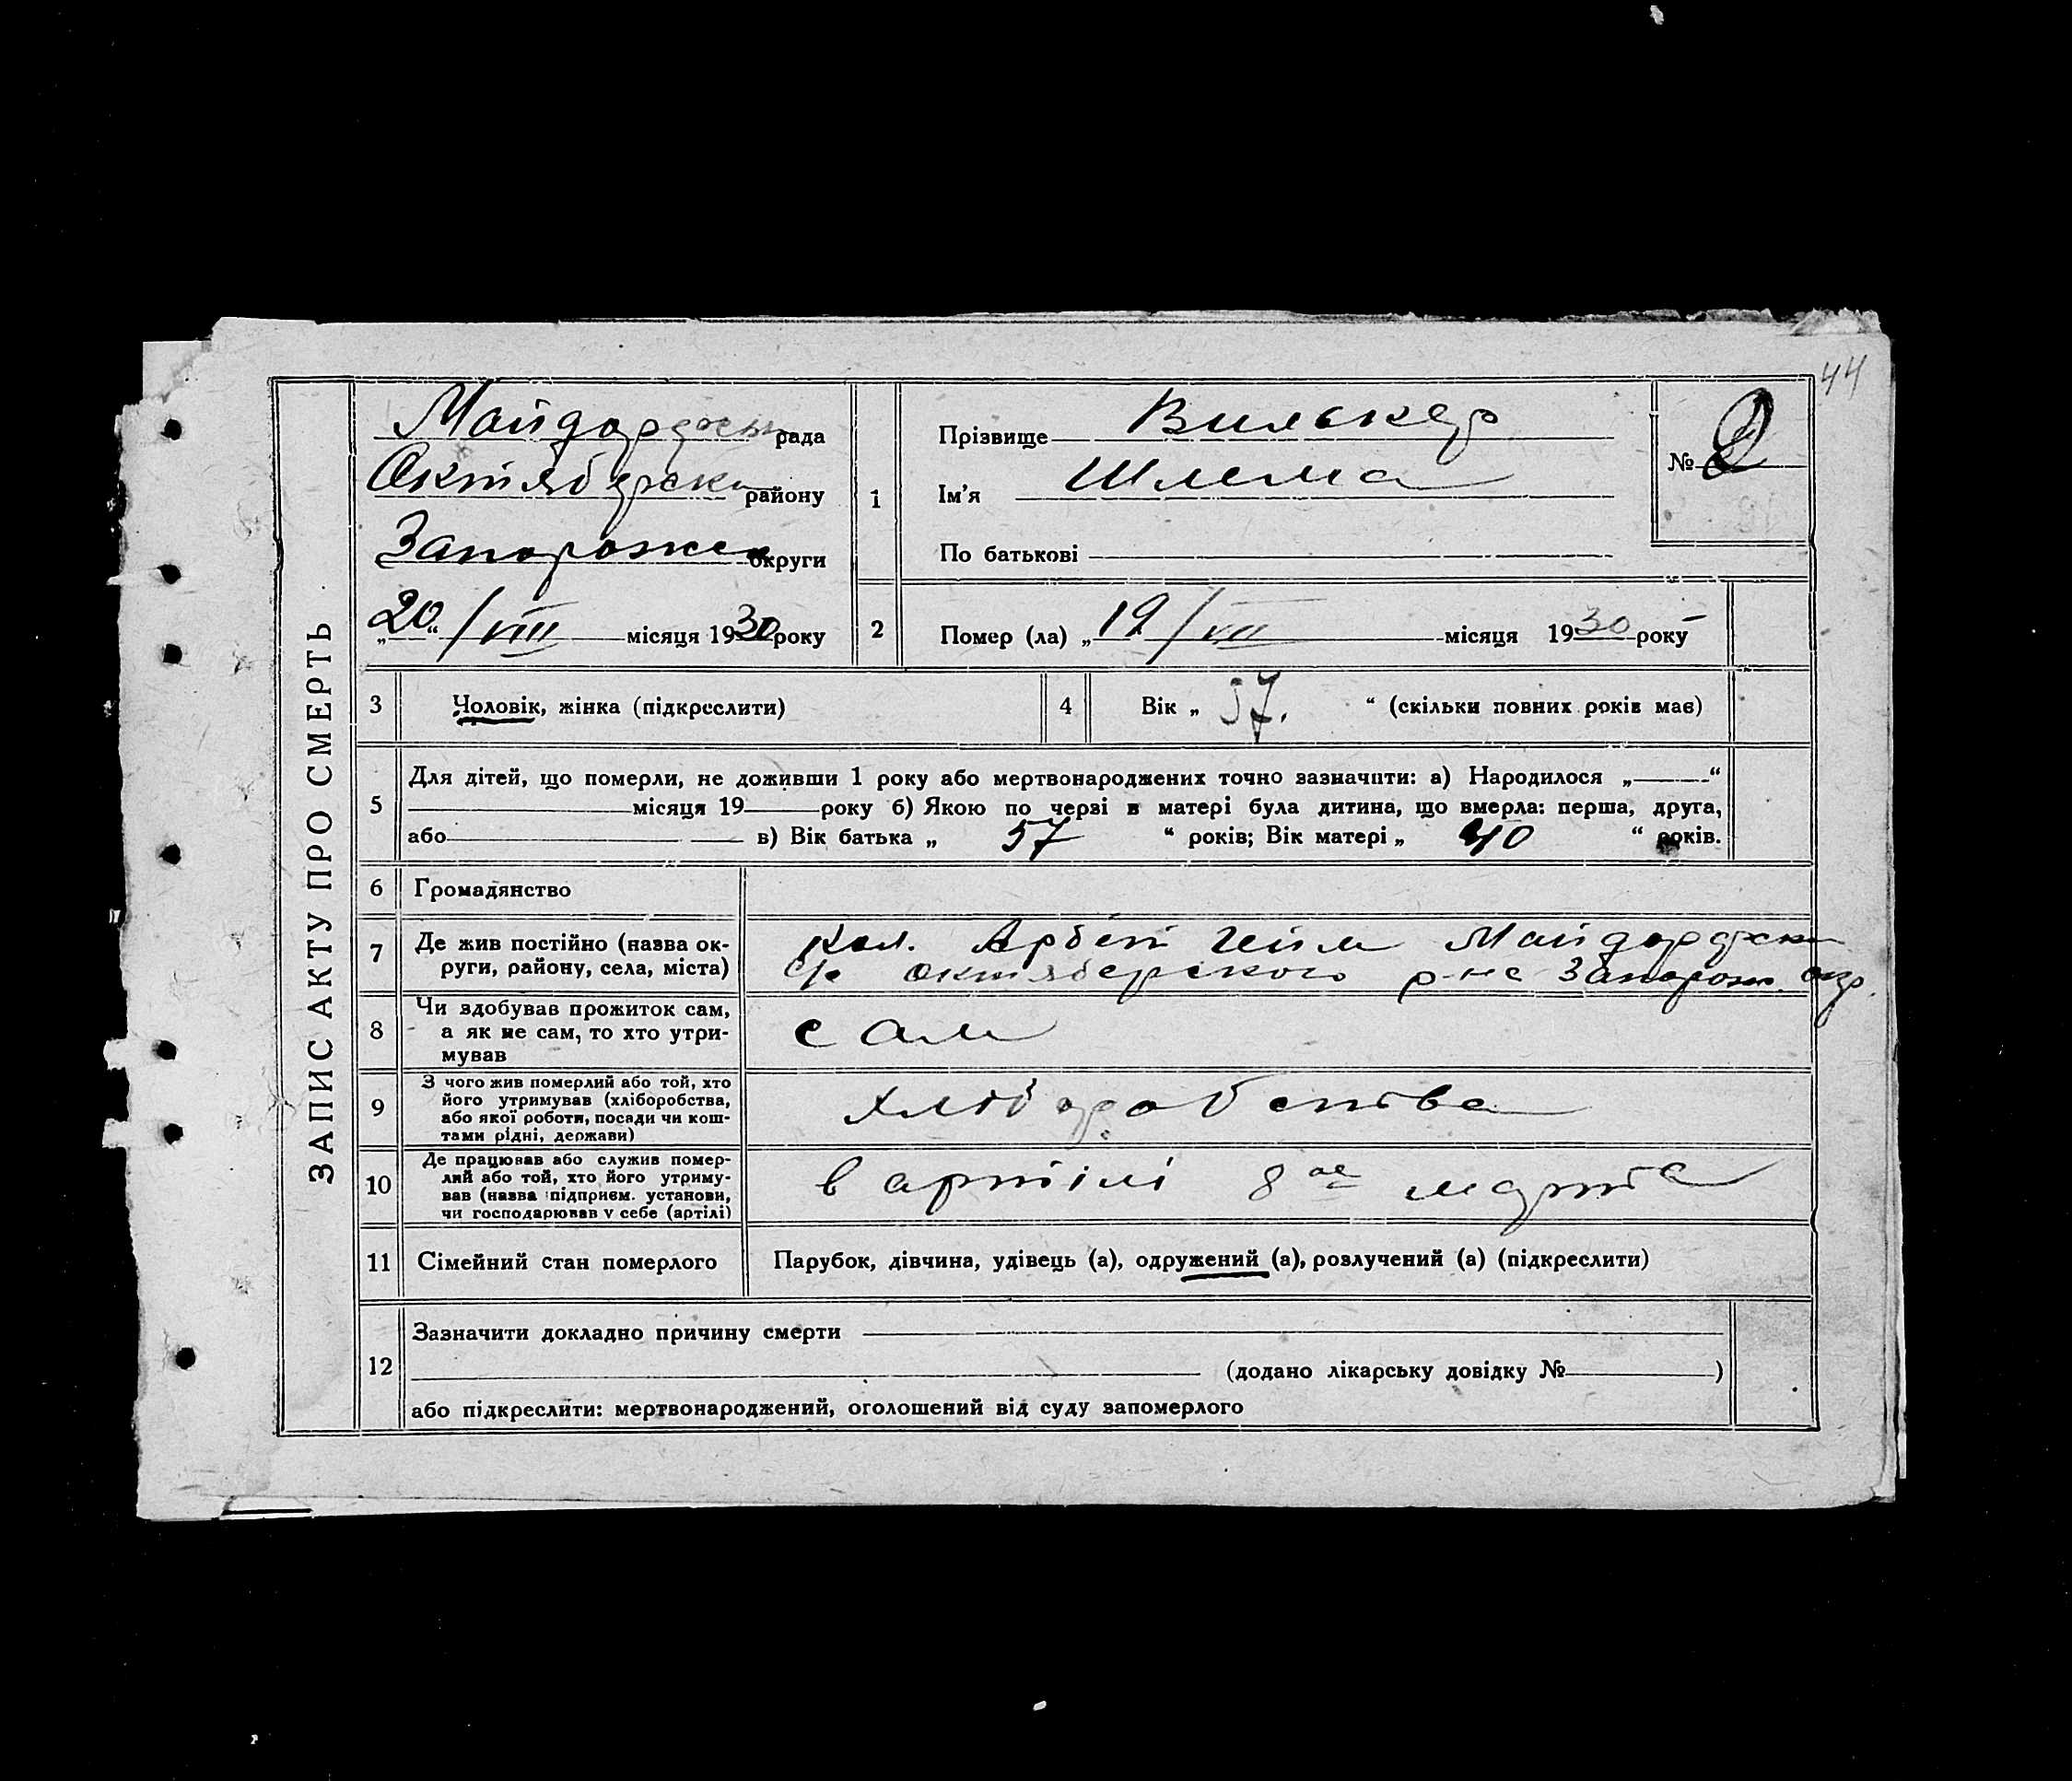 44
ЗАПИС АКТУ ПРО СМЕРТЬ
Майдорфськ рада
Октяберськ району
Запорожск округи
„20“/VIII місяця 1930 року
1
Прізвище Вилькер
Ім'я Шлема
По батькові
№ 2
2
Помер (ла) „19/VIII місяця 1930 року
3 Чоловік, жінка (підкреслити)
4 Вік „ 57. “ (скільки повних років має)
5 Для дітей, що померли, не доживши 1 року або мертвонароджених точно зазначити: а) Народилося „ “
місяця 19 року б) Якою по черзі в матері була дитина, що вмерла: перша, друга,
або в) Вік батька „ 57 “ років; Вік матері „ 40 “ років.
6 Громадянство
7 Де жив постійно (назва ок-
руги, району, села, міста)
Кол. Арбейт Гейм Майдорфськ
с/р Октяберського р-на Запорож. окр.
8 Чи здобував прожиток сам,
а як не сам, то хто утри-
мував
сам
9 З чого жив померлий або той, хто
його утримував (хліборобства,
або якої роботи, посади чи кош-
тами рідні, держави)
хліборобства
10 Де працював або служив помер-
лий або той, хто його утриму-
вав (назва підприєм. установи,
чи господарював у себе (артілі)
в артілі 8ое марта
11 Сімейний стан померлого
Парубок, дівчина, удівець (а), одружений (а), розлучений (а) (підкреслити)
12 Зазначити докладно причину смерти
(додано лікарську довідку № )
або підкреслити: мертвонароджений, оголошений від суду запомерлого